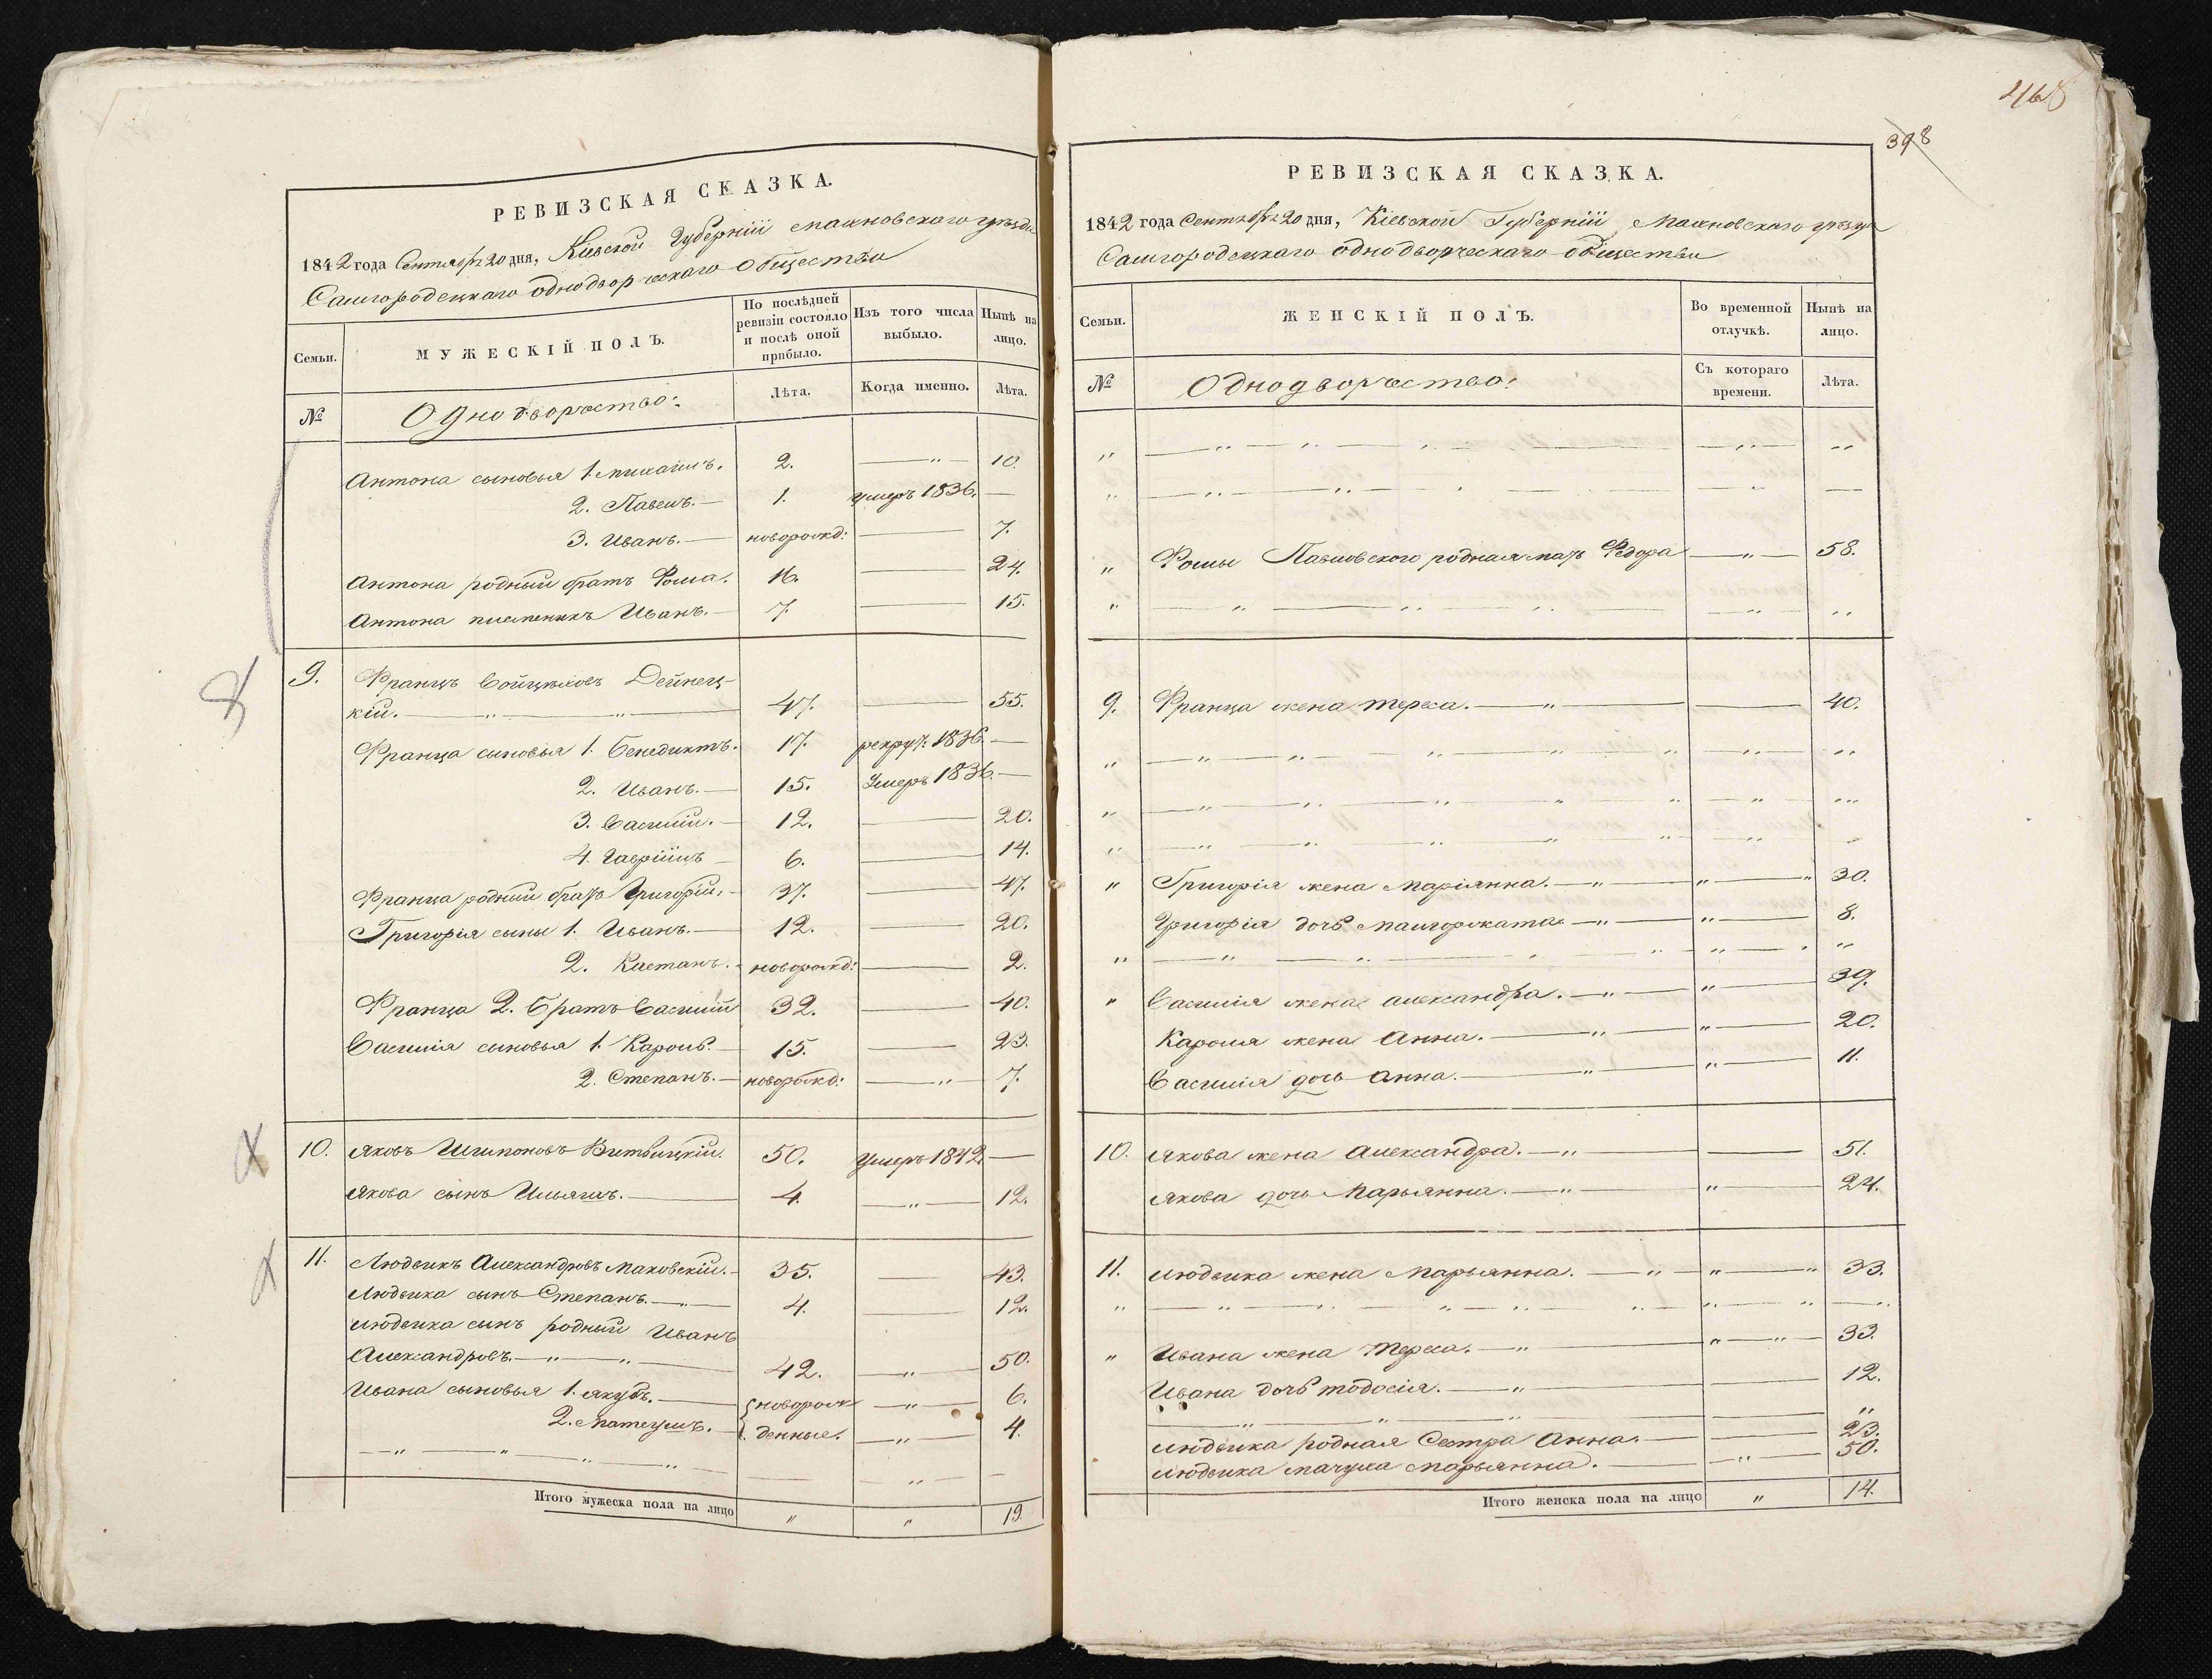 РЕВИЗСКАЯ СКАЗКА.
1842 года Сентября 20 дня, Кіевской Губерніи Махновскаго уѣзда
Самгородецкаго однодворческаго Общества
Семьи.
МУЖЕСКІЙ ПОЛЪ.
По послѣдней ревизіи состояло и послѣ оной прибыло.
Изъ того числа выбыло.
Нынѣ на лицо.
№
Однодворчество:
Лѣта.
Когда именно.
Лѣта.
Антона сыновья 1. Михаилъ. 2. — " — 10.
2. Павелъ. — 1. умеръ 1836. —
3. Иванъ. — новорожд: — 7.
Антона родный братъ Фома. 16. — 24.
Антона племеникъ Иванъ. — 7. — 15.
9. Францъ Войцѣховъ Дейнец-
кій. — " — " — 47. — 55.
Франца сыновья 1. Бенедиктъ. 17. рекрут: 1836. —
2. Иванъ. — 15. Умеръ 1836. —
3. Василій. — 12. — 20.
4. Гавріилъ — 6. — 14.
Франца родный братъ Григорій, — 37. — 47.
Григорія сыны 1. Иванъ. — 12. — 20.
2. Каетанъ. — новорожд: — 2.
Франца 2. Братъ Василій 32. — 40.
Василія сыновья 1. Кароль. — 15. — 23.
2. Степанъ. — новорожд: — " — 7.
10. Яковъ Витвицкій. 50. Умеръ 1842. —
Якова сынъ Ильяшъ. — 4. — " — 12.
11. Людвикъ Александровъ Маковскій. — 35. — 43.
Людвика сынъ Степанъ. — " — 4. — 12.
Людвика сынъ родный Иванъ
Александровъ. — " — " — 42. — " — 50.
Ивана сыновья 1. Якубъ. — { новорож- — " — 6.
2. Матеушъ. — { денные. — " — 4.
— " — " — " — " — — " — —
Итого мужеска пола на лицо " " 19.
468
398
РЕВИЗСКАЯ СКАЗКА.
1842 года Сентября 20 дня, Кіевской Губерніи, Махновскаго уѣзда
Самгородецкаго однодворческаго общества
Семьи.
ЖЕНСКІЙ ПОЛЪ.
Во временной отлучкѣ.
Нынѣ на лицо.
№
Однодворчество:
Съ котораго времени.
Лѣта.
" — " — " — " — — " — "
" — " — " — " — — " — —
" Фомы Павловскаго родная мать Федора — " — 58.
" — " — " — " — — " — "
9. Франца жена Тереса. — " — — 40.
" — " — " — " — " — " — " — "
" — " — " — " — " — " — " — "
" — " — " — " — " — " — " — "
" Григорія жена Маріянна. — " — " — " 30.
Григорія дочь Малгоржата — " — " — 8.
" — " — " — " — " — " — "
" Василія жена Александра. — " — " — 39.
Кароля жена Анна. — " — " — 20.
Василія дочь Анна. — " — " — 11.
10. Якова жена Александра. — " — — 51.
Якова дочь Марьянна. — " — " — 24.
11. Людвика жена Марьянна. — " — " — " 33.
" — " — " — " — " — " — " — " — "
" Ивана жена Тереса. — " — " — " — 33.
Ивана дочь Тодосія. — " — — 12.
— " — " — " — — "
Людвика родная Сестра Анна. — — 23.
Людвика мачуха Марьянна. — — " — 50.
Итого женска пола на лицо " 14.